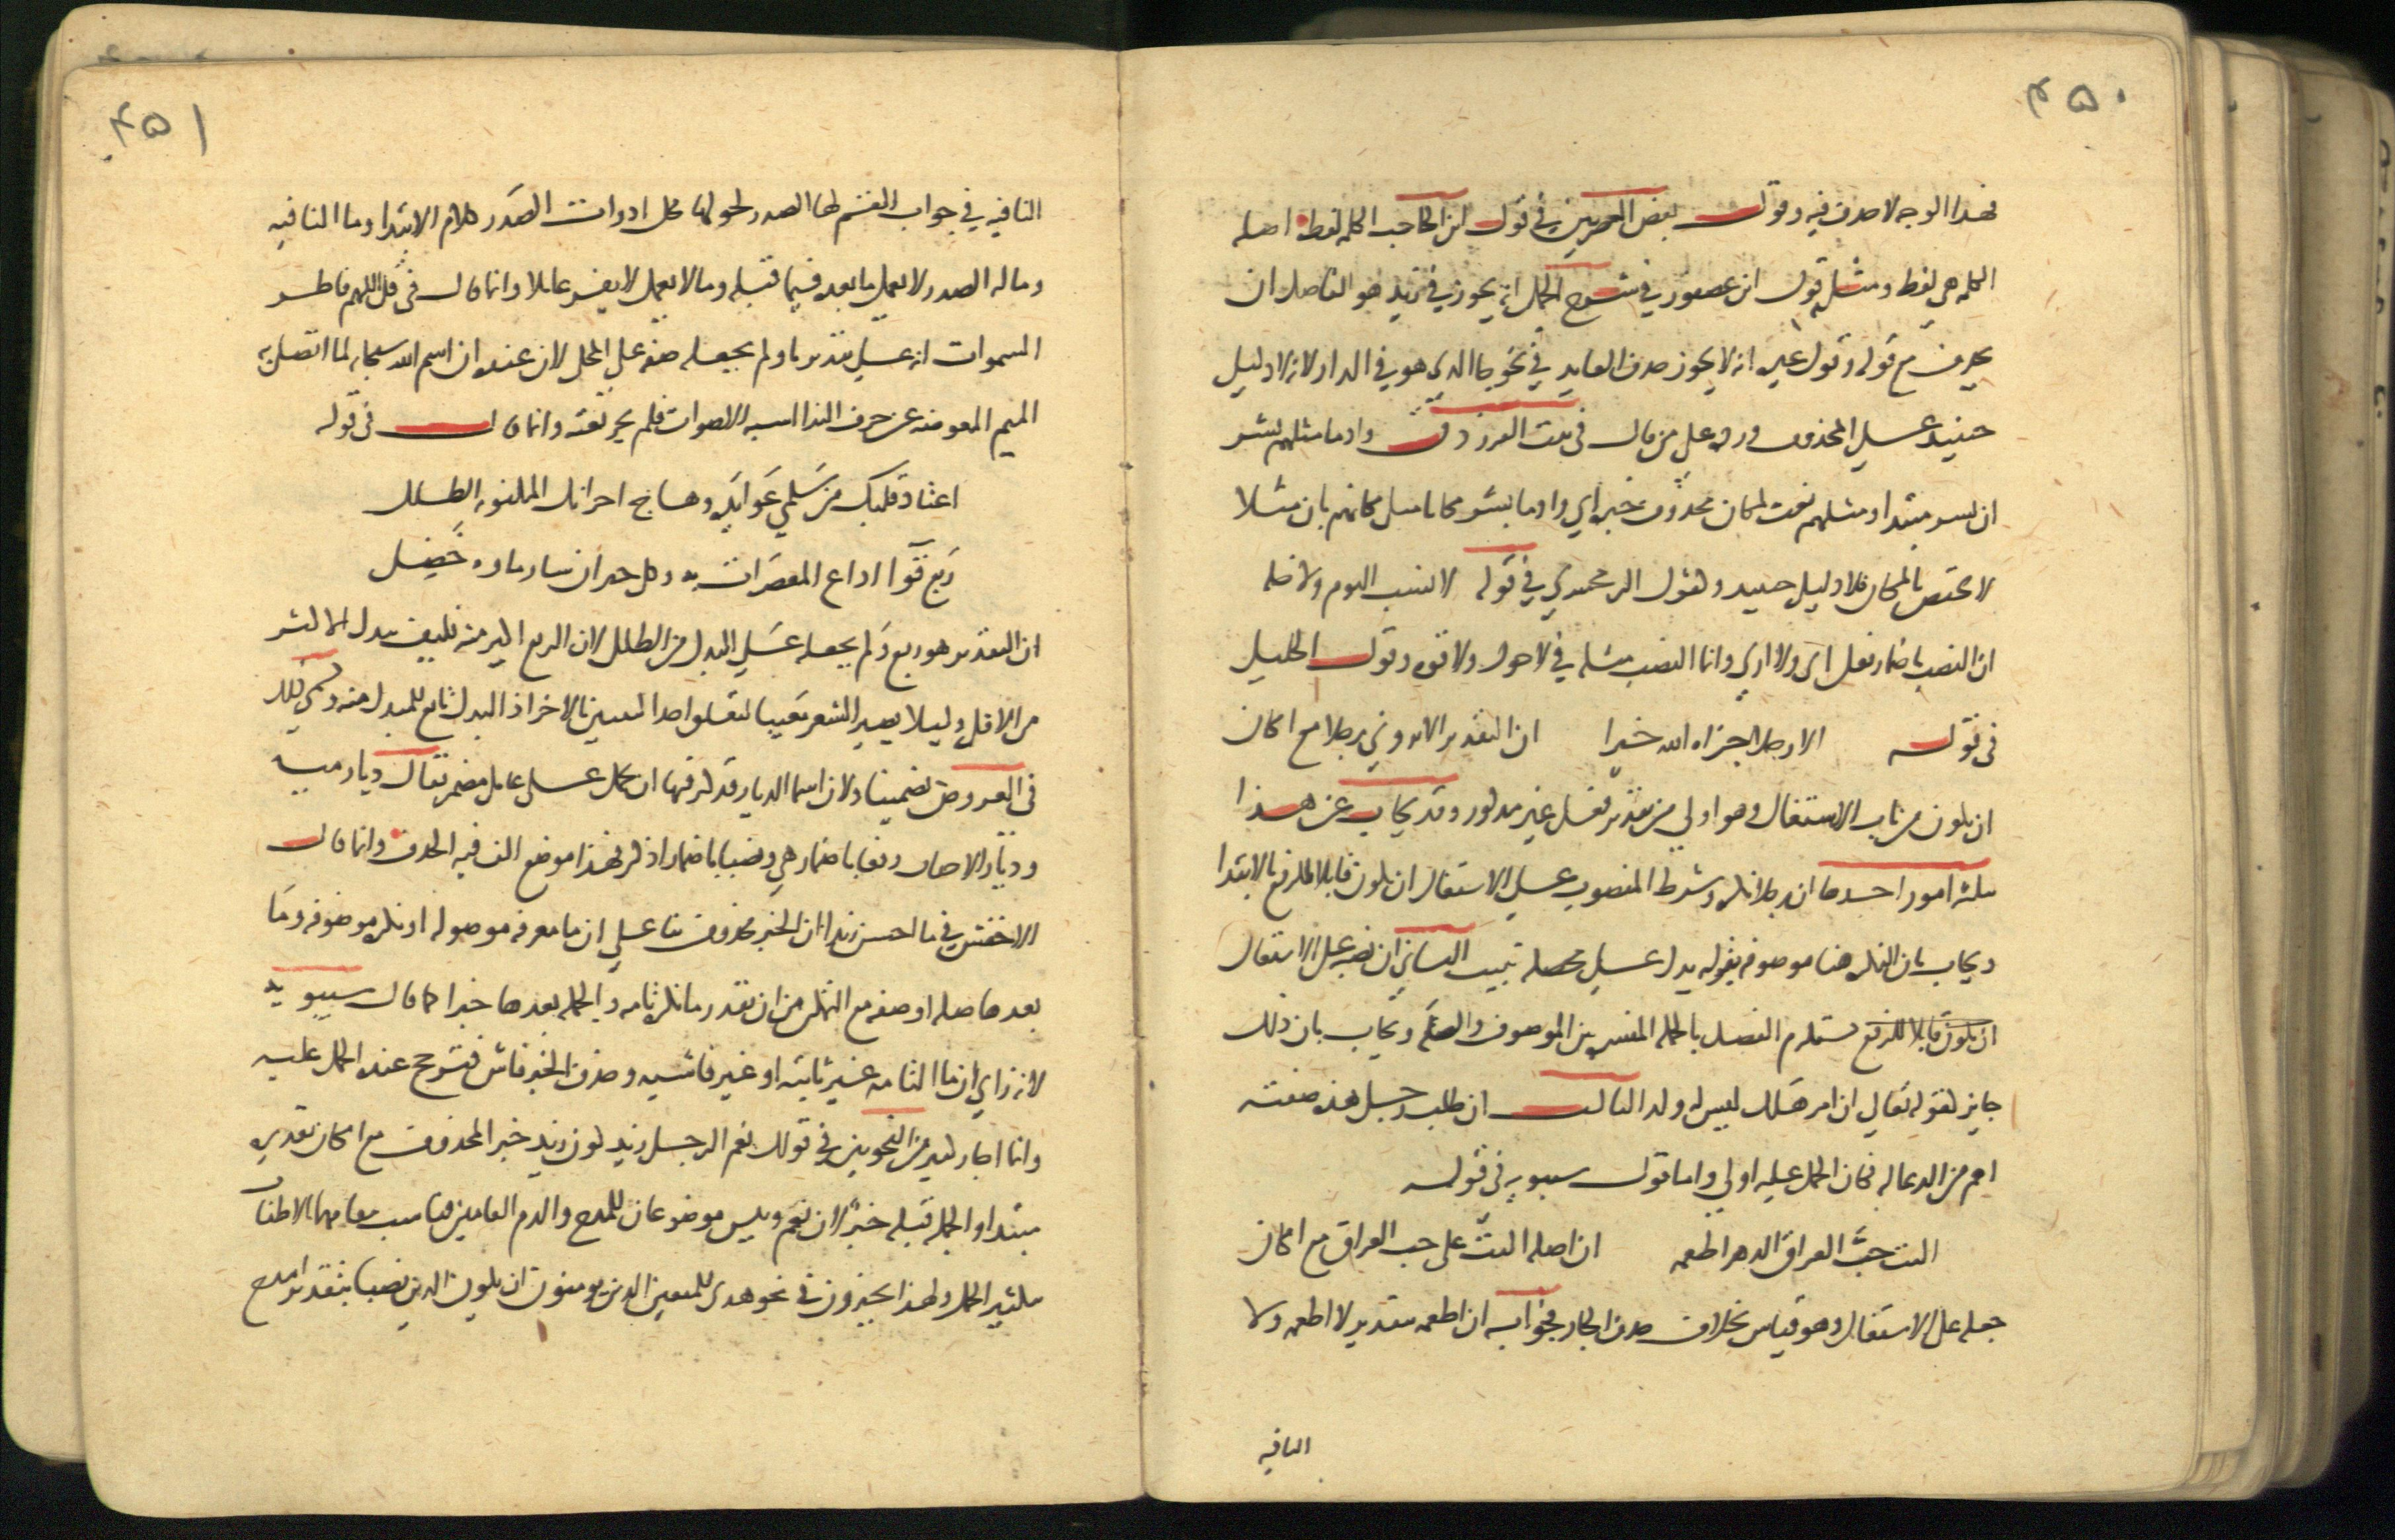 ٤٥٠
فهذا الوجه لا حذف فيه وقول بعض المعربين في قول ابن الحاجب الكلمه لفظ اصله
الكلمه هي لفظ ومثله قول ابن عصفور في شرح الجمل انه يجوز في زيد هو الفاضل ان
يحذف مع قوله وقول غيره انه لا يجوز حذف العايد في نحو جا الذي هو في الدار لانه لا دليل
حينيذ علي المحذوف ورده علي من قال في بيت الفرزدق واذ ما مثلهم بشر
ان بشر مبتدا ومثلهم نعت لمكان محذوف خبره اي واذ ما بشر مكانا مثل مكانهم بان مثلا
لا يختص بالمكان فلا دليل حينيد وكقول الزمخشري في قوله لا نسب اليوم ولا خله
ان النصب باضمار فعل اي ولا اري وانما النصب مثله في لا حول ولا قوه وقول الخليل
في قوله الا رجلا جزاه الله خيرا ان التقدير الا تروني رجلا مع امكان
ان يكون من باب الاشتغال وهو اولي من تقدير فعل غير مذكور وقد يجاب عن هذا
بثلثه امور احدها ان رجلا نكره وشرط المنصوب علي الاشتغال ان يكون قابلا للرفع بالابتدا
ويجاب بان النكره هنا موصوفه بقوله يدل علي محصله تبيت الثاني ان نصبه علي الاشتغال
ان يكون قابلا للرفع يستلزم الفصل بالجمله المفسره بين الموصوف والصفه ويجاب بان ذلك
جايز لقوله تعالي ان امرؤ هلك ليس له ولد الثالث ان طلب رجل هذه صفته
اهم من الدعا له فكان الحمل عليه اولي واما قول سيبويه في قوله
اليت حبَّ العراق الدهر اطعمه ان اصله اليت علي حب العراق مع امكان
جعله علي الاشتغال وهو قياس بخلاف حذف الجار فجوابه ان اطعمه بتقدير لا اطعمه ولا
النافيه
٤٥١
النافيه في جواب القسم لها الصدر لحلولها محل ادوات الصدر كلام الابتدا وما النافيه
وما له الصدر لا يعمل ما بعده فيما قبله وما لا يعمل لا يفسر عاملا وانما قال في قل اللهم فاطر
السموات انه علي تقدير يا ولم يجعله صفه علي المحل لان عنده ان اسم الله سبحانه لما اتصل به
الميم المعوضه عن حرف الندا اشبه الاصوات فلم يجز نعته وانما قال في قوله
اعتاد قلبك من سلمي عوايده وهاج احزانك المكنونه الطلل
ربع قوا اذاع المعصرات به وكل حيران سار ماوه خضل
ان التقدير هو ربع ولم يجعله علي البدل من الطلل لان الربع اكثر منه فكيف يبدل الاكثر
من الاقل وليلا يصير الشعر معيبا لتعلق احد البيتين بالاخر اذ البدل تابع للمبدل منه وسمي ذلك
في العروض تضمينا ولان اسما الديار قد كثر فيها ان تحمل علي عامل مضمر يقال ديار ميه
وديار الاحباب رفعا باضمار هي ونصبا باضمار اذكر فهذا موضع الف فيه الحذف وانما قال
الاخفش في ما احسن زيدا ان الخبر محذوف بنا علي ان ما معرفه موصوله او نكره موصوفه وما
بعدها صله او صفه مع التمكن من ان تقدر ما نكره تامه والجمله بعدها خبرا كما قال سيبويه
لانه راي ان ما التامه غير ثابته او غير فاشيه وحذف الخبر فاش فترجح عنده الحمل عليه
وانما اجاز كثير من النحويين في قولك نعم الرجل زيد كون زيد خبر المحذوف مع امكان تقديره
مبتدا والجمله قبله خبرٌ لان نعم وبيس موضوعان للمدح والذم العامين فناسب مقامهما الاطناب
بتكثير الجمل ولهذا يجيزون في نحو هدى للمتقين الذين يومنون ان يكون الذين نصبا بتقدير امدح